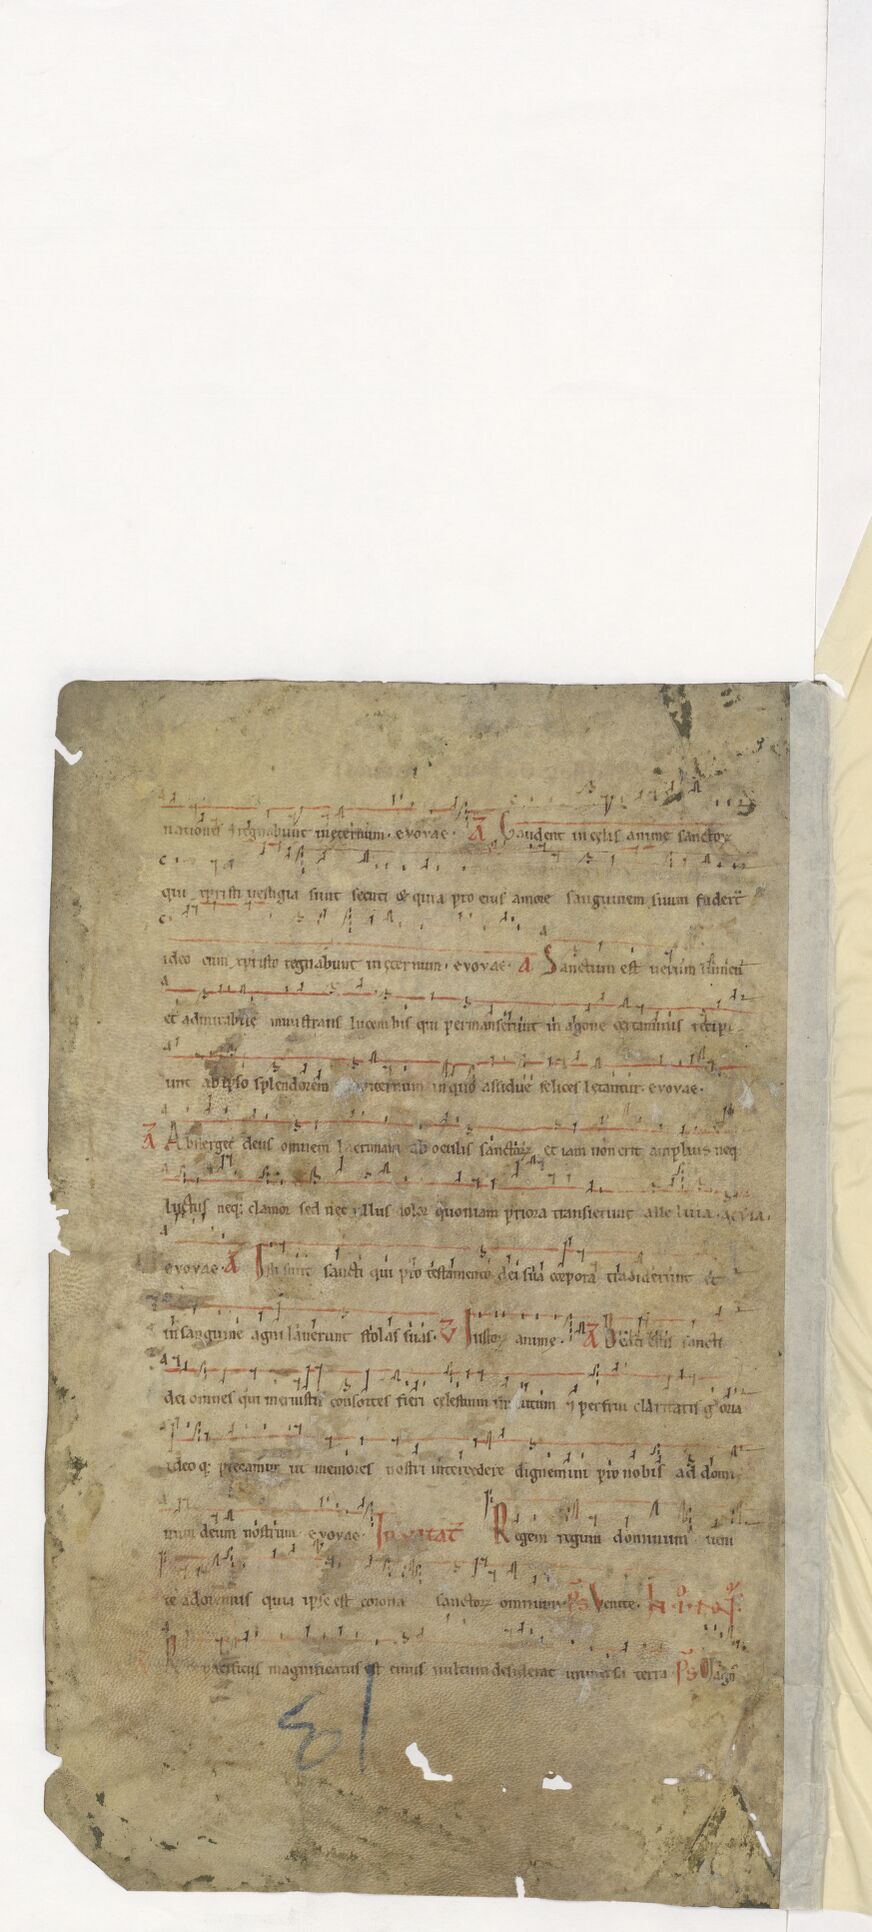 nationes et regnabunt in ęternum. evovae. A Gaudent in cęlis anime sanctoꝝ
qui xpristi vestigia sunt secuti & quia pro eius amore sanguinem suum fuderūt
ideo cum xpristo regnabunt in ęternum. evovae. A Sanctum est verum lumen
et admirabile ministrans lucem his qui permanserunt in agone certaminis recipi
unt ab ipso splendorem in quo assidue felices letantur. evovae.
A Absterget deus omnem lacrimam ab oculis sanctoꝝ et iam non erit amplius neq;
luctus neq; clamor sed nec ullus dolor quoniam priora transierunt alleluia. aevia.
evovae. A Isti sunt sancti qui pro testamento dei sua corpora tradiderunt et
in sanguine agni laverunt stolas suas. V Iustoꝝ anime. A Beati estis sancti
dei omnes qui meruistis consortes fieri cęlestium virtutum ⁊ perfrui claritatis gloria
ideoq; precamur ut memores nostri intercedere dignemini pro nobis ad domi
num deum nostrum. evovae. Invitat Regem regum dominum veni
te adoremus quia ipse est corona sanctoꝝ omnium. ps Venite.
Rex pacificus magnificatus est cuius vultum desiderat universa terra ps Magn